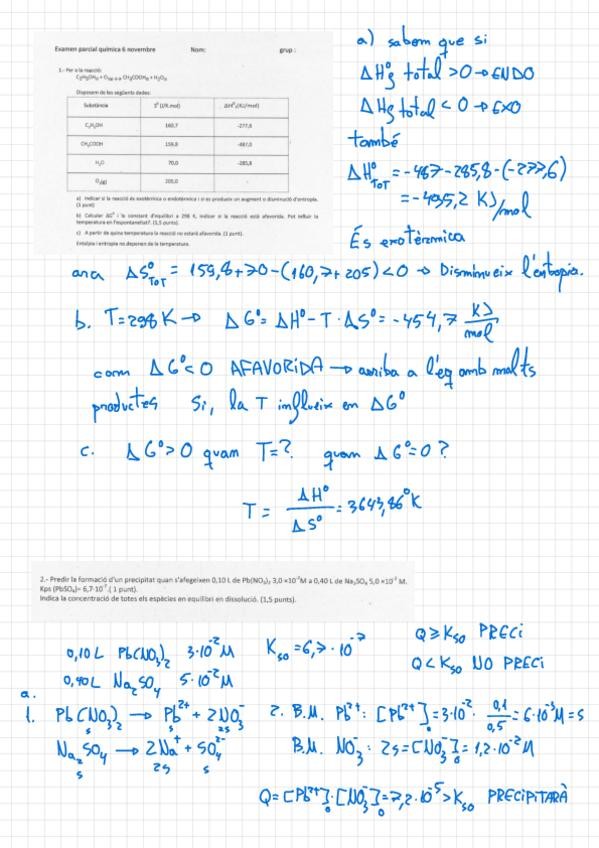 Examen parcial química 6 novembre Nom: grup :
1.- Per a la reacció:
Disposem de les següents dades:
Substància S⁰ (J/K.mol) ΔH⁰f(KJ/mol)
C₂H₅OH 160,7 -277,6
CH₃COOH 159,8 -487,0
H₂O 70,0 -285,8
O₂(g) 205,0
a) Indicar si la reacció és exotèrmica o endotèrmica i si es produeix un augment o disminució d'entropia.
(1 punt)
b) Calcular ΔG⁰ i la constant d'equilibri a 298 K, indicar si la reacció està afavorida. Pot influir la
temperatura en l'espontaneïtat?. (1,5 punts).
c) A partir de quina temperatura la reacció no estarà afavorida. (1 punt).
Entalpia i entropia no depenen de la temperatura.
a) sabem que si
ΔH⁰f total >0 → ENDO
ΔHf total < 0 → EXO
també
ΔH⁰TOT = -487-285,8-(-277,6)
= -495,2 KJ/mol
És exotèrmica
ara ΔS⁰TOT = 159,8+70-(160,7+205)<0 → Disminueix l'entropia.
b. T=298K → ΔG⁰= ΔH⁰-T·ΔS⁰= -454,7 KJ/mol
com ΔG⁰<0 AFAVORiDA → arriba a l'eq amb molts
productes Si, la T influeix en ΔG⁰
c. ΔG⁰>0 quam T=? quam ΔG⁰=0?
T = ΔH⁰/ΔS⁰ = 3643,86°K
2.- Predir la formació d'un precipitat quan s'afegeixen 0,10 L de Pb(NO₃)₂ 3,0 ×10⁻²M a 0,40 L de Na₂SO₄ 5,0 ×10⁻² M.
Kps (PbSO₄)= 6,7·10⁻⁷.( 1 punt).
Indica la concentració de totes els espècies en equilibri en dissolució. (1,5 punts).
0,10L Pb(NO₃)₂ 3·10⁻²M Kso=6,7·10⁻⁷ Q≥Kso PRECi
0,40L Na₂SO₄ 5·10⁻²M Q<Kso NO PRECi
a.
1. Pb(NO₃)₂ → Pb²⁺ + 2NO₃⁻ 2. B.M. Pb²⁺: [Pb²⁺]₀=3·10⁻²· 0,1/0,5 = 6·10⁻³M=s
s s 2s
Na₂SO₄ → 2Na⁺ + SO₄²⁻ B.M. NO₃⁻: 2s=[NO₃⁻]₀=1,2·10⁻²M
s 2s s
Q=[Pb²⁺]₀·[NO₃⁻]₀=7,2·10⁻⁵>Kso PRECIPITARÀ